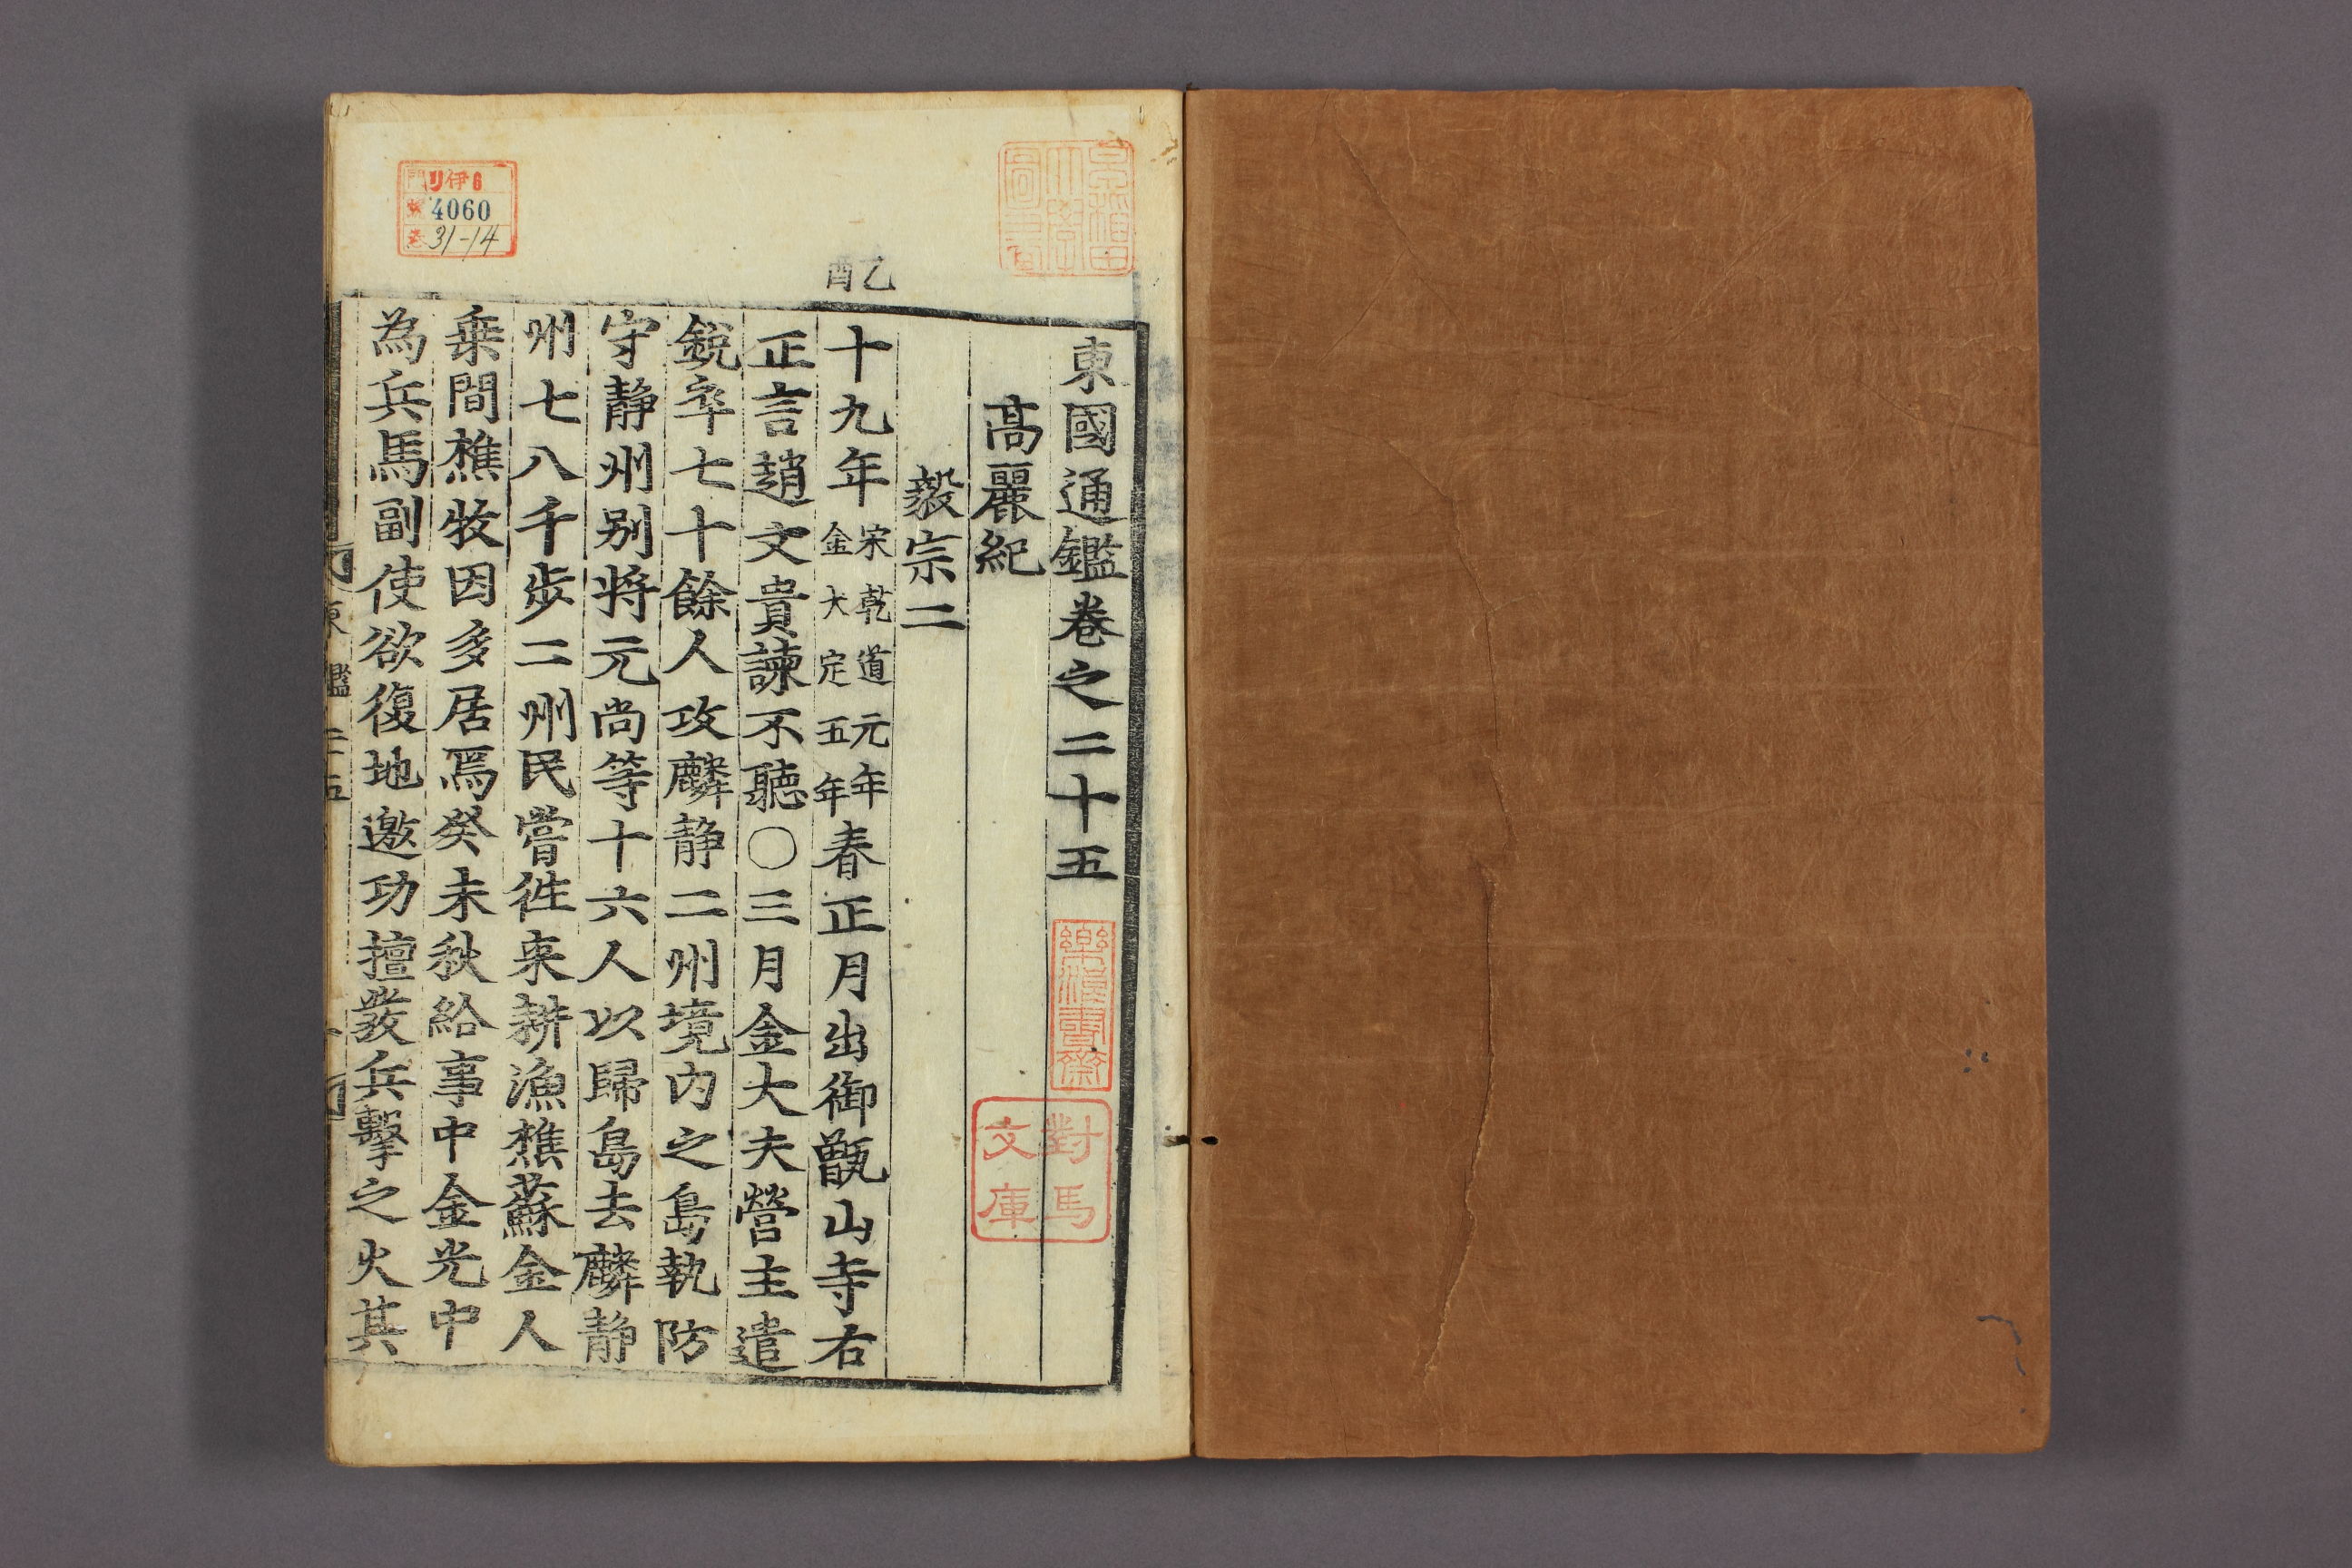 東國通鑑卷之二十五
高麗紀
毅宗二
乙酉
十九年宋乾道元年金大定五年春正月出御甑山寺右
正言趙文貴諫不聽○三月金大夫營主遣
銳卒七十餘人攻麟静二州境内之島執防
守静州别将元尚等十六人以歸島去麟静
州七八千步二州民嘗徃来耕漁樵蘇金人
乗間樵牧因多居焉癸未秋給事中金光中
為兵馬副使欲復地邀功擅發兵擊之火其
樂浪書齋
對馬
文庫
門リ伊6
號4060
卷31-14
東鑑二十五